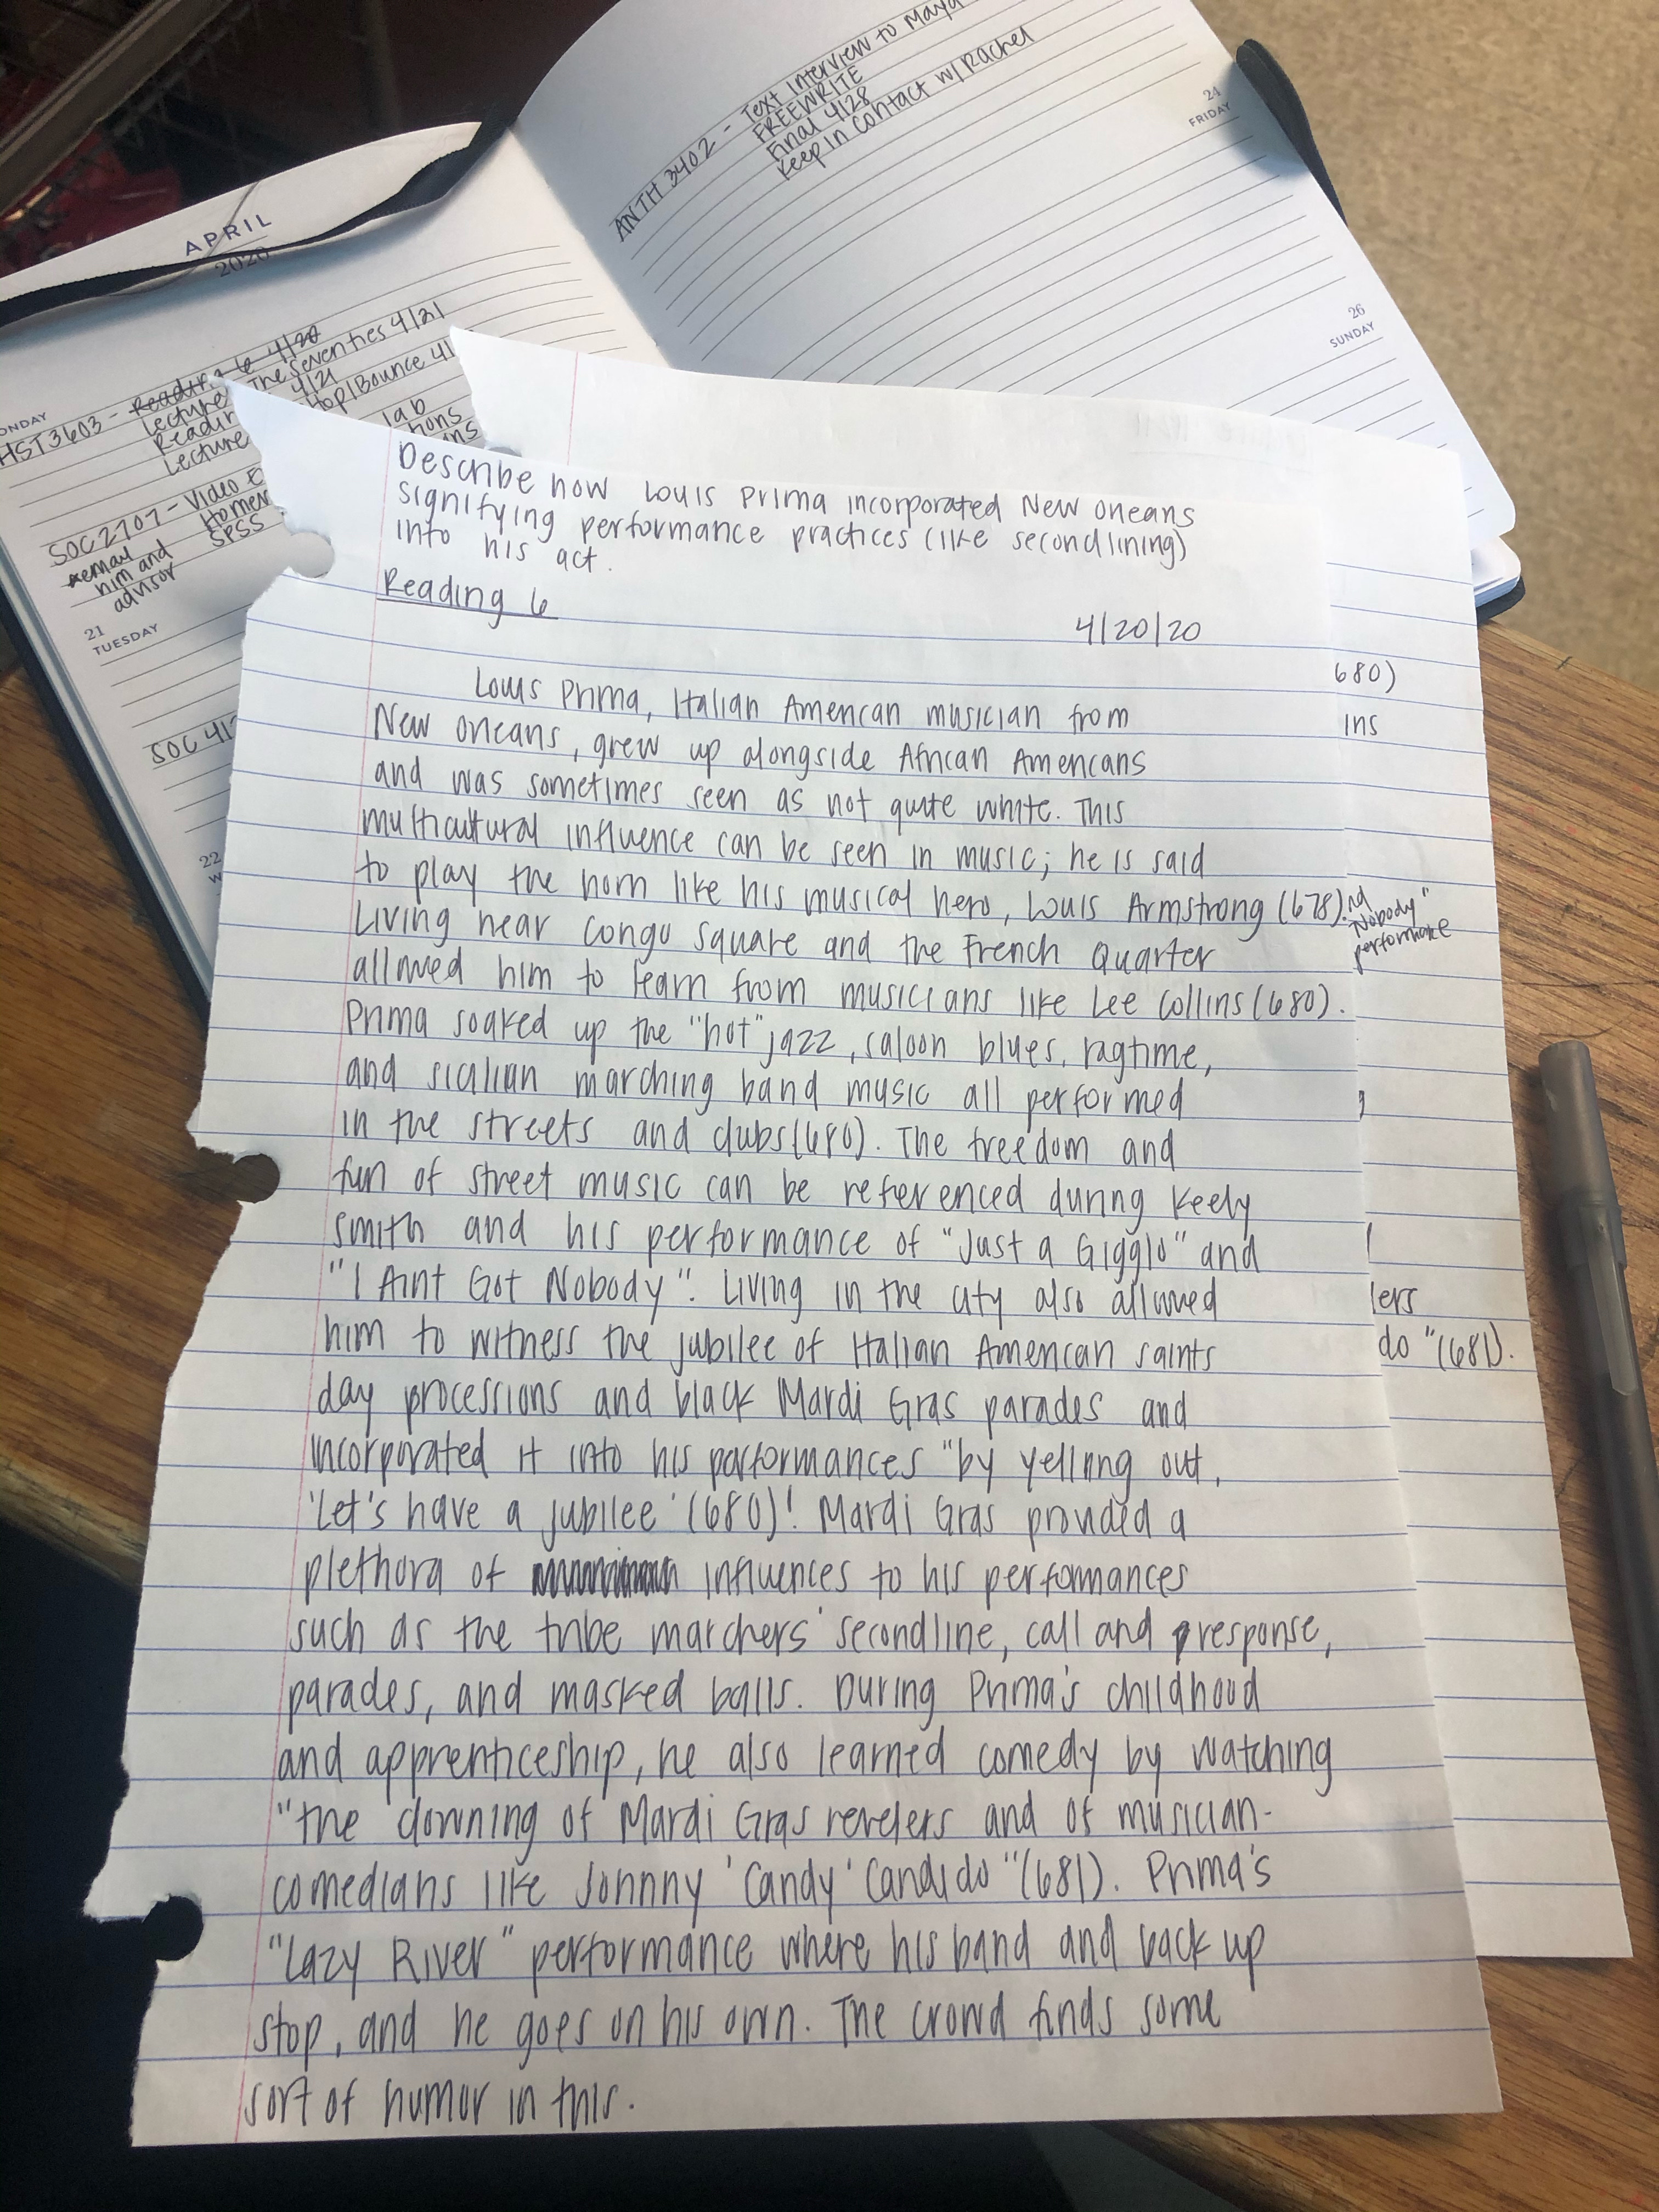 ANTH 3402 - Text Interview to Maya
FREEWRITE
Final 4/28
Keep In Contact w/ Rachel
24
FRIDAY
26
SUNDAY
APRIL
2020
ONDAY
HST3603 - Reading 6 4/20
Lecture The Seventies 4/21
Readin 4/21
Lecture Hop/Bounce 4/
lab
tions
ns
SOC2707 - Video E
Homew
SPSS
*email
him and
advisor
21
TUESDAY
SOC 41
22
W
Describe how Louis Prima incorporated New Orleans
signifying performance practices (like secondlining)
into his act.
Reading 6
4/20/20
Louis Prima, Italian American musician from
New Orleans, grew up alongside African Americans
and was sometimes seen as not quite white. This
multicultural influence can be seen in music; he is said
to play the horn like his musical hero, Louis Armstrong (678).
Living near Congo Square and the French Quarter
allowed him to learn from musicians like Lee Collins (680).
Prima soaked up the "hot" jazz, saloon blues, ragtime,
and sicilian marching band music all performed
in the streets and clubs (680). The freedom and
fun of street music can be referenced during Keely
Smith and his performance of "Just a Gigglo" and
"I Aint Got Nobody". Living in the city also allowed
him to witness the jubilee of Italian American saints
day processions and black Mardi Gras parades and
incorporated it into his performances "by yelling out,
'Let's have a jubilee' (680)! Mardi Gras provided a
plethora of influences to his performances
such as the tribe marchers' secondline, call and response,
parades, and masked balls. During Prima's childhood
and apprenticeship, he also learned comedy by watching
"the clowning of Mardi Gras revelers and of musician-
comedians like Johnny 'Candy' Candido" (681). Prima's
"Lazy River" performance where his band and back up
stop, and he goes on his own. The crowd finds some
sort of humor in this.
680)
ins
nd
Nobody"
performance
,
lers
do "(681).